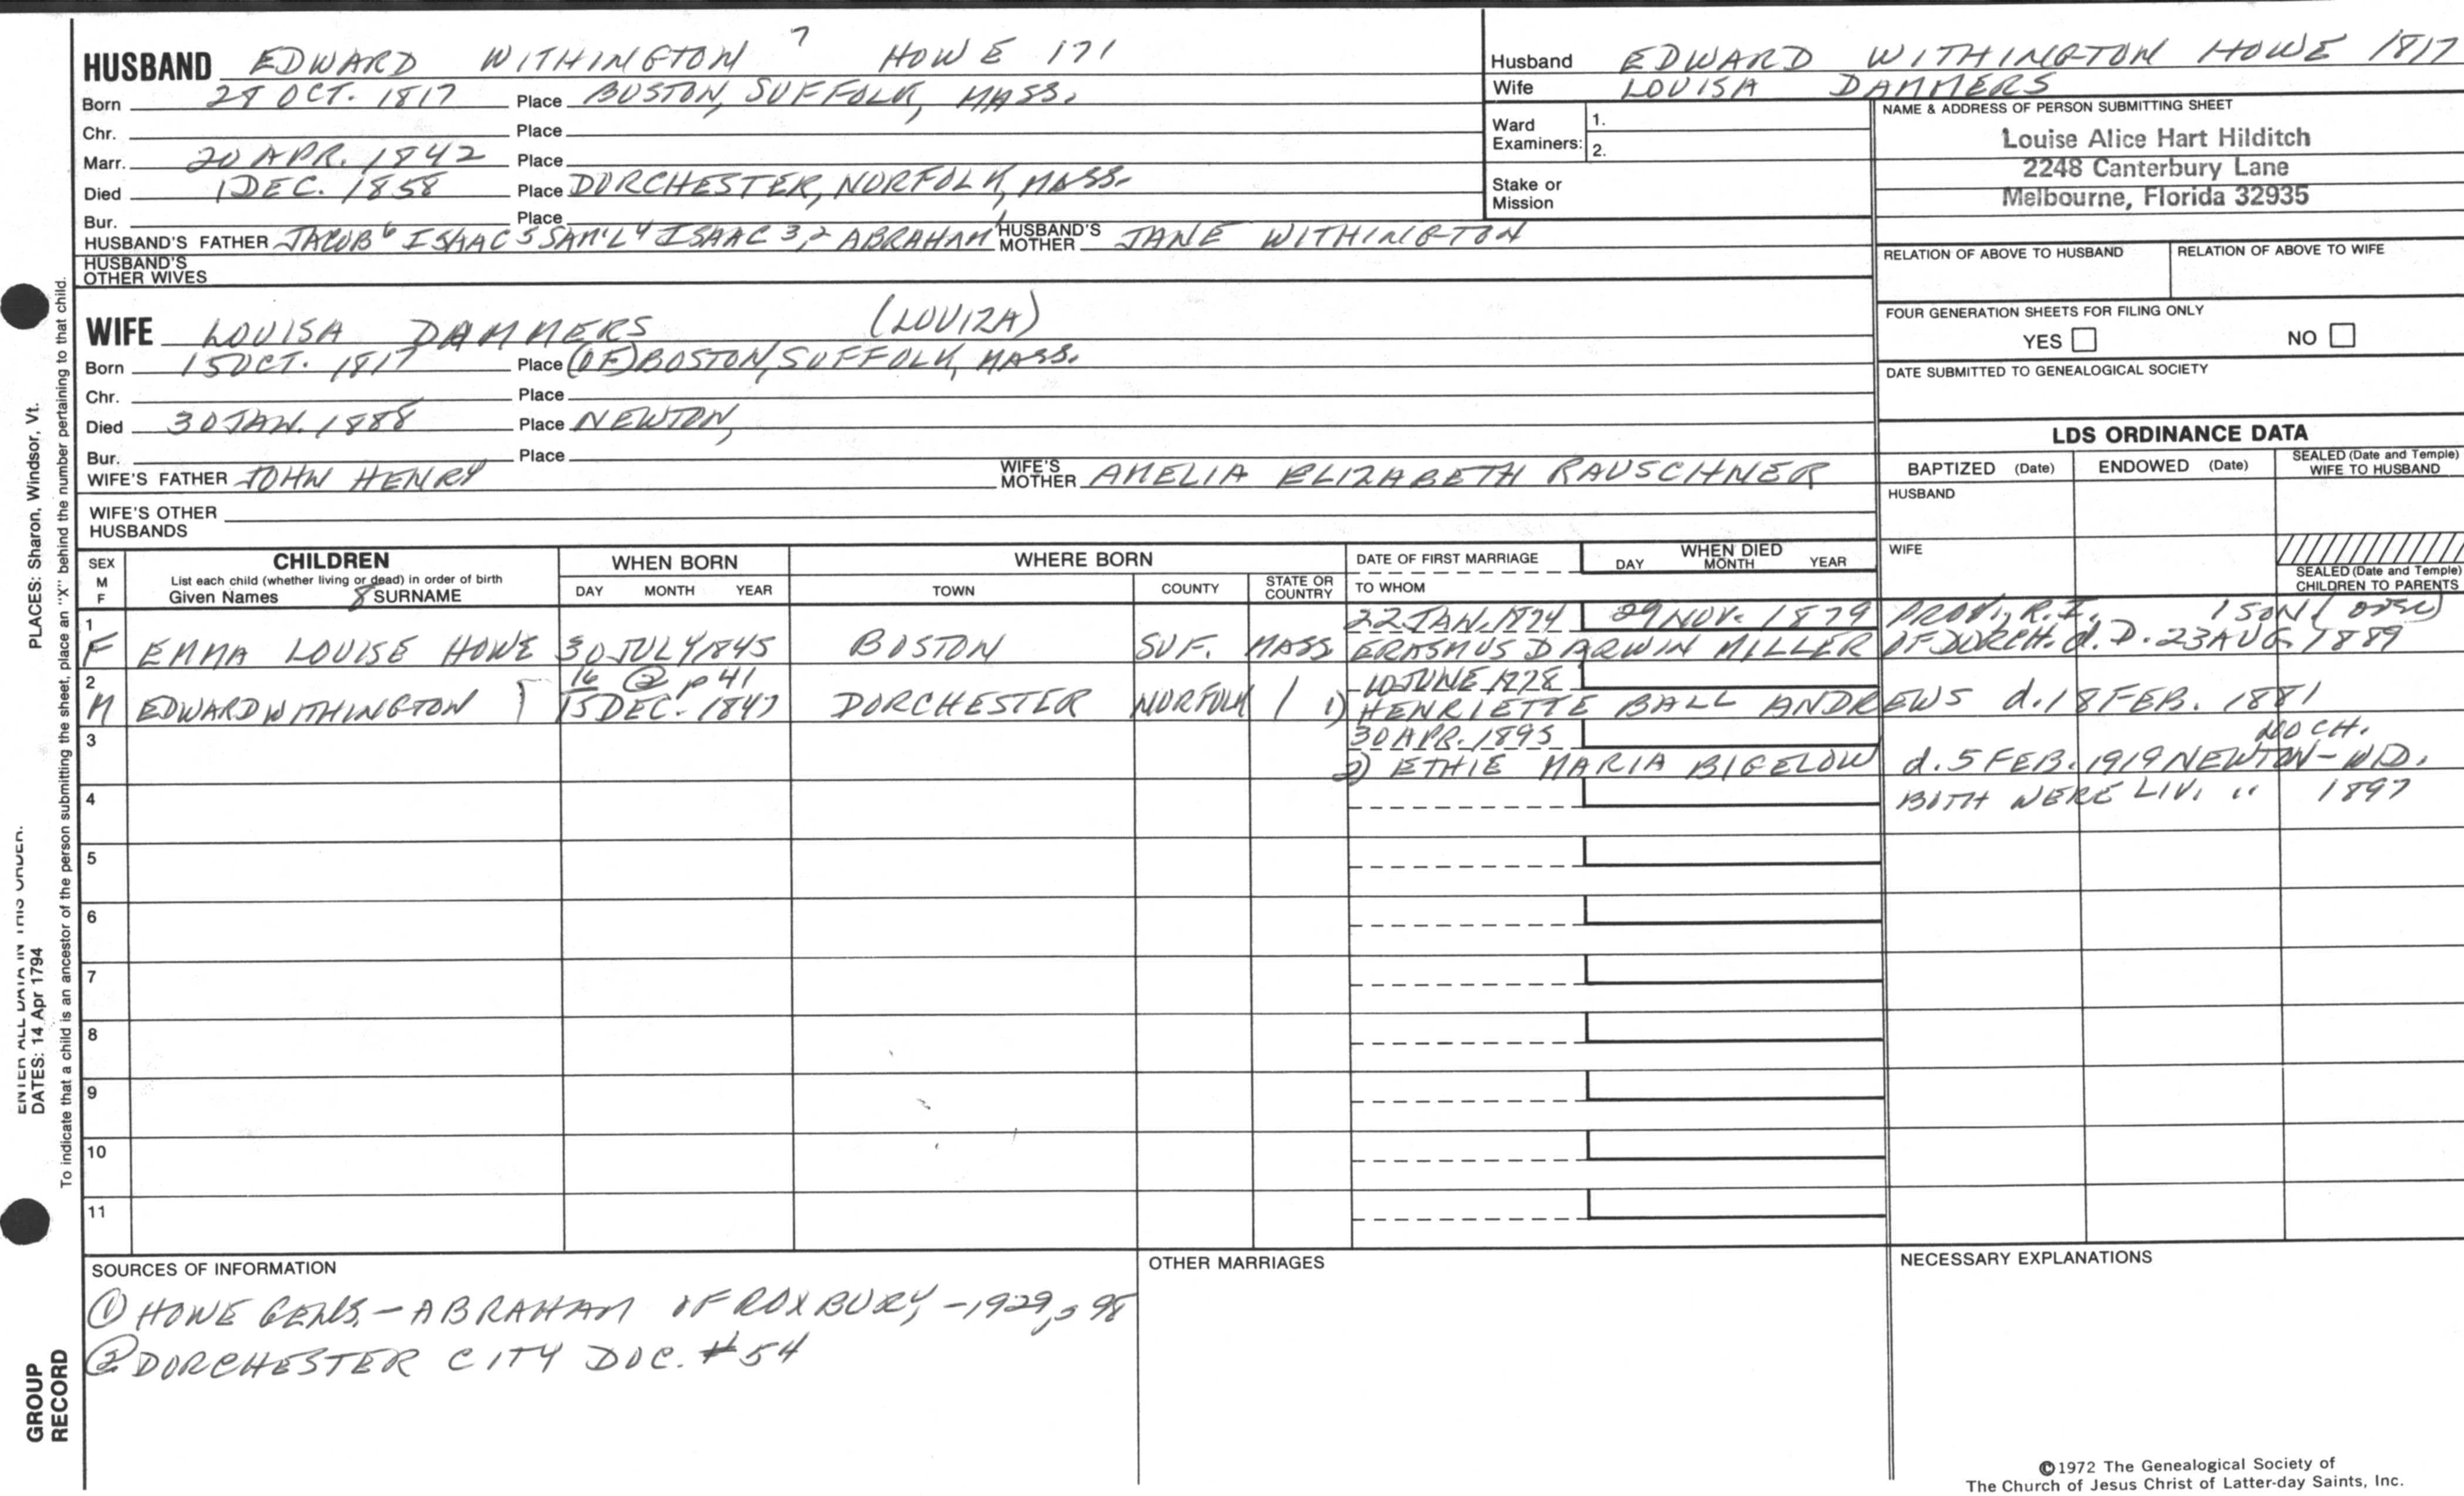 HUSBAND EDWARD WITHINGTON 7 HOWE 171
Born 28 OCT. 1817 Place BOSTON, SUFFOLK, MASS.
Chr. Place
Marr. 20 APR. 1842 Place
Died 1 DEC. 1858 Place DORCHESTER, NORFOLK, MASS.
Bur. Place
HUSBAND'S FATHER JACOB 6 ISAAC 5 SAM'L 4 ISAAC 3,2 ABRAHAM 1 HUSBAND'S MOTHER JANE WITHINGTON
HUSBAND'S OTHER WIVES
Husband EDWARD WITHINGTON HOWE 1817
Wife LOUISA DAMMERS
Ward Examiners: 1.
2.
Stake or Mission
NAME & ADDRESS OF PERSON SUBMITTING SHEET
Louise Alice Hart Hilditch
2248 Canterbury Lane
Melbourne, Florida 32935
RELATION OF ABOVE TO HUSBAND RELATION OF ABOVE TO WIFE
FOUR GENERATION SHEETS FOR FILING ONLY
YES NO
DATE SUBMITTED TO GENEALOGICAL SOCIETY
WIFE LOUISA DAMMERS (LOUIZA)
Born 15 OCT. 1817 Place (OF) BOSTON, SUFFOLK, MASS.
Chr. Place
Died 30 JAN. 1888 Place NEWTON,
Bur. Place
WIFE'S FATHER JOHN HENRY WIFE'S MOTHER AMELIA ELIZABETH RAUSCHNER
WIFE'S OTHER HUSBANDS
LDS ORDINANCE DATA
BAPTIZED (Date) ENDOWED (Date) SEALED (Date and Temple) WIFE TO HUSBAND
HUSBAND
WIFE
SEALED (Date and Temple) CHILDREN TO PARENTS
SEX M F CHILDREN WHEN BORN WHERE BORN DATE OF FIRST MARRIAGE WHEN DIED
List each child (whether living or dead) in order of birth
Given Names 8 SURNAME DAY MONTH YEAR TOWN COUNTY STATE OR COUNTRY TO WHOM DAY MONTH YEAR
1 22 JAN. 1874 29 NOV. 1879 PROV., R.I. 1 SON
F EMMA LOUISE HOWE 30 JULY 1845 BOSTON SUF. MASS ERASMUS DARWIN MILLER OF DORCH. d. D. 23 AUG. 1889
2 16 @ p 41 10 JUNE 1878
M EDWARD WITHINGTON 15 DEC. 1847 DORCHESTER NORFOLK 1) HENRIETTE BALL ANDREWS d. 18 FEB. 1881
3 30 APR. 1895 NO CH.
2) ETHIE MARIA BIGELOW d. 5 FEB. 1919 NEWTON - WID.
4 BOTH WERE LIV. " 1897
5
6
7
8
9
10
11
SOURCES OF INFORMATION OTHER MARRIAGES NECESSARY EXPLANATIONS
① HOWE GENLS. - ABRAHAM OF ROXBURY, - 1929, p 98
② DORCHESTER CITY DOC. #54
©1972 The Genealogical Society of
The Church of Jesus Christ of Latter-day Saints, Inc.
PLACES: Sharon, Windsor, Vt.
ENTER ALL DATA IN THIS ORDER:
DATES: 14 Apr 1794
To indicate that a child is an ancestor of the person submitting the sheet, place an "X" behind the number pertaining to that child.
GROUP
RECORD